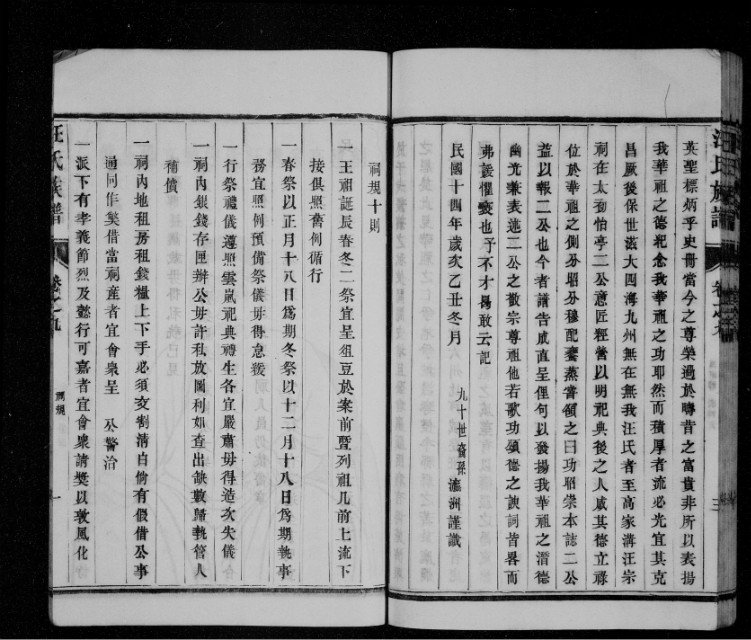 汪氏族譜
卷之九
三
英聖標炳乎史冊當今之尊榮過於疇昔之富貴非所以表揚
我華祖之德紀念我華祖之功耶然而積厚者流必光宜其克
昌厥後保世滋大四海九州無在無我汪氏者至高家溝汪宗
祠在太勁怡亭二公意匠經營以明祀典後之人感其德立祿
位於華祖之側分昭分穆配饗蒸嘗額之曰功昭崇本誌二公
益以報二公也今者譜告成直呈俚句以發揚我華祖之潛德
幽光兼表述二公之敬宗尊祖他若歌功頌德之諛詞皆畧而
弗諼懼褻也予不才曷敢云記
民國十四年歲次乙丑冬月
九十世裔孫瀛洲謹識
祠規十則
一王祖誕辰春冬二祭宜呈俎豆於案前曁列祖几前上流下
接俱照舊例循行
一春祭以正月十八日爲期冬祭以十二月十八日爲期執事
務宜照例預備祭儀毋得怠緩
一行祭禮儀遵照雲嵐祀典禮生各宜嚴肅毋得造次失儀
一祠內銀錢存匣辦公毋許私放圖利如查出缺數歸執管人
補償
一祠內地租房租錢糧上下手必須交割清白倘有假借公事
通同作獘借當祠產者宜會衆呈 公警治
一派下有孝義節烈及懿行可嘉者宜會衆請獎以敦風化
汪氏族譜
卷之九
祠規
一